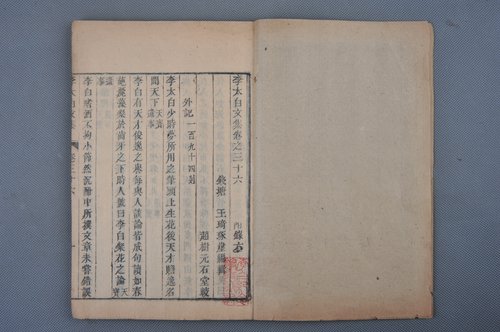 李太白文集卷之三十六
錢塘 王琦琢崖輯註
趙樹元石堂較
外記一百九十四則
李太白少時夢所用之筆頭上生花後天才贍逸名
聞天下 天寶遺事
李白有天才俊逸之譽每與人談論皆成句讀如春
葩麗藻粲於齒牙之下時人號曰李白粲花之論 天寶
遺事
李白嗜酒不拘小節然沉酣中所撰文章未嘗錯誤
李太白文集 卷三十六